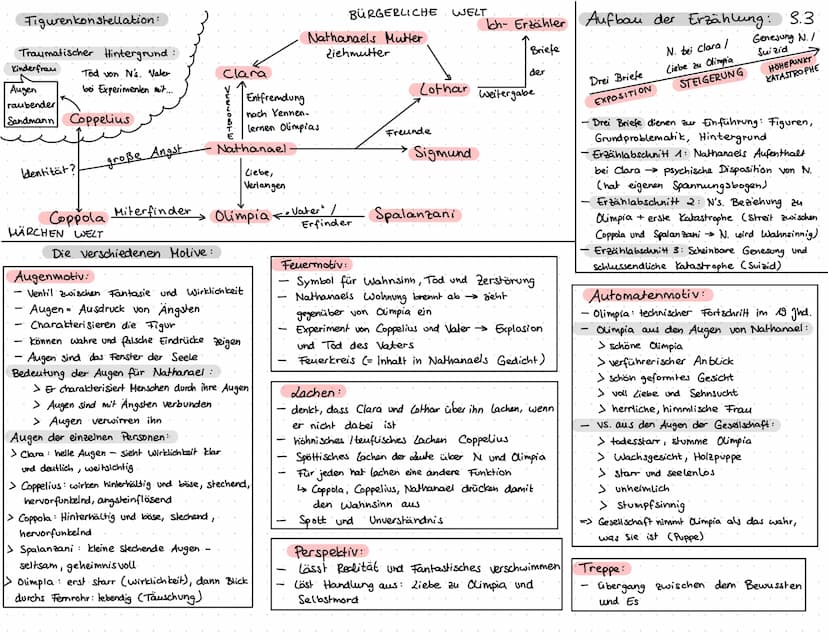 Figurenkonstellation:
BÜRGERLICHE WELT
Traumatischer Hintergrund:
Kinderfrau
Augen
raubender
Sandmann
Tod von N's. Vater
bei Experimenten mit...
Coppelius
Nathanaels Mutter
Ziehmutter
Ich-Erzähler
Clara
Lothar
Briefe
der
Weitergabe
VERLOBTE
Entfremdung
nach Kennen-
lernen Olimpias
Freunde
Nathanael
Sigmund
große Angst
Identität?
Liebe,
Verlangen
Coppola
Miterfinder
Olimpia
"Vater" /
Erfinder
Spalanzani
MÄRCHEN WELT
Aufbau der Erzählung: S.3
Drei Briefe
EXPOSITION
N. bei Clara /
Liebe zu Olimpia
STEIGERUNG
Genesung N. /
Suizid
HÖHEPUNKT
KATASTROPHE
- Drei Briefe dienen zur Einführung: Figuren,
Grundproblematik, Hintergrund
- Erzählabschnitt 1: Nathanaels Aufenthalt
bei Clara → psychische Disposition von N.
(hat eigenen Spannungsbogen)
- Erzählabschnitt 2: N's. Beziehung zu
Olimpia + erste Katastrophe (Streit zwischen
Coppola und Spalanzani → N. wird Wahnsinnig)
- Erzählabschnitt 3: Scheinbare Genesung und
schlussendliche Katastrophe (Suizid)
Die verschiedenen Motive:
Augenmotiv:
- Ventil zwischen Fantasie und Wirklichkeit
- Augen = Ausdruck von Ängsten
- Charakterisieren die Figur
- können wahre und falsche Eindrücke zeigen
- Augen sind das Fenster der Seele
Bedeutung der Augen für Nathanael:
> Er charakterisiert Menschen durch ihre Augen
> Augen sind mit Ängsten verbunden
> Augen verwirren ihn
Augen der einzelnen Personen:
> Clara: helle Augen - sieht Wirklichkeit klar
und deutlich, weitsichtig
> Coppelius: wirken hinterhältig und böse, stechend,
hervorfunkelnd, angsteinflösend
> Coppola: Hinterhältig und böse, stechend,
hervorfunkelnd
> Spalanzani: kleine stechende Augen -
seltsam, geheimnisvoll
> Olimpia: erst starr (wirklichkeit), dann Blick
durchs Fernrohr: lebendig (Täuschung)
Feuermotiv:
- Symbol für Wahnsinn, Tod und Zerstörung
- Nathanaels Wohnung brennt ab → zieht
gegenüber von Olimpia ein
- Experiment von Coppelius und Vater → Explosion
und Tod des Vaters
- Feuerkreis (= Inhalt in Nathanaels Gedicht)
Lachen:
- denkt, dass Clara und Lothar über ihn lachen, wenn
er nicht dabei ist
- höhnisches / teuflisches Lachen Coppelius
- Spöttisches Lachen der Leute über N und Olimpia
- Für jeden hat Lachen eine andere Funktion
↳ Coppola, Coppelius, Nathanael drücken damit
den Wahnsinn aus
- Spott und Unverständnis
Perspektiv:
- Lässt Realität und Fantastisches verschwimmen
- Löst Handlung aus: Liebe zu Olimpia und
Selbstmord
Automatenmotiv:
- Olimpia: technischer Fortschritt im 19 Jhd.
- Olimpia aus den Augen von Nathanael:
> schöne Olimpia
> verführerischer Anblick
> schön geformtes Gesicht
> voll Liebe und Sehnsucht
> herrliche, himmlische Frau
- vs. aus den Augen der Gesellschaft:
> todesstarr, stumme Olimpia
> Wachsgesicht, Holzpuppe
> starr und seelenlos
> unheimlich
> stumpfsinnig
=> Gesellschaft nimmt Olimpia als das wahr,
was sie ist (Puppe)
Treppe:
- übergang zwischen dem Bewussten
und Es